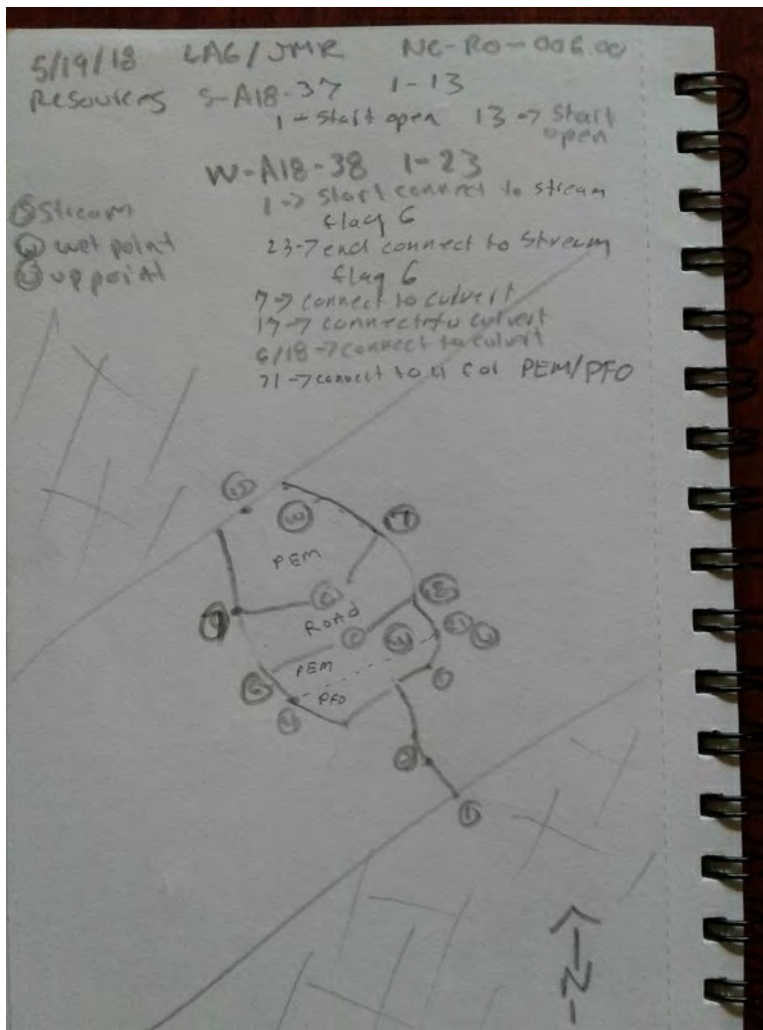 5/19/18 LAG/JMR NC-RO-006.00
Resources S-A18-37 1-13
1 → Start open 13 → Start
open
W-A18-38 1-23
1 → Start connect to stream
flag 6
23 → end connect to stream
flag 6
7 → connect to culvert
17 → connect to culvert
6/18 → connect to culvert
21 → connect to 4 for PEM/PFO
S Stream
W wet point
U up point
W
7
PEM
C
ROAD
C
PEM
PFO
N